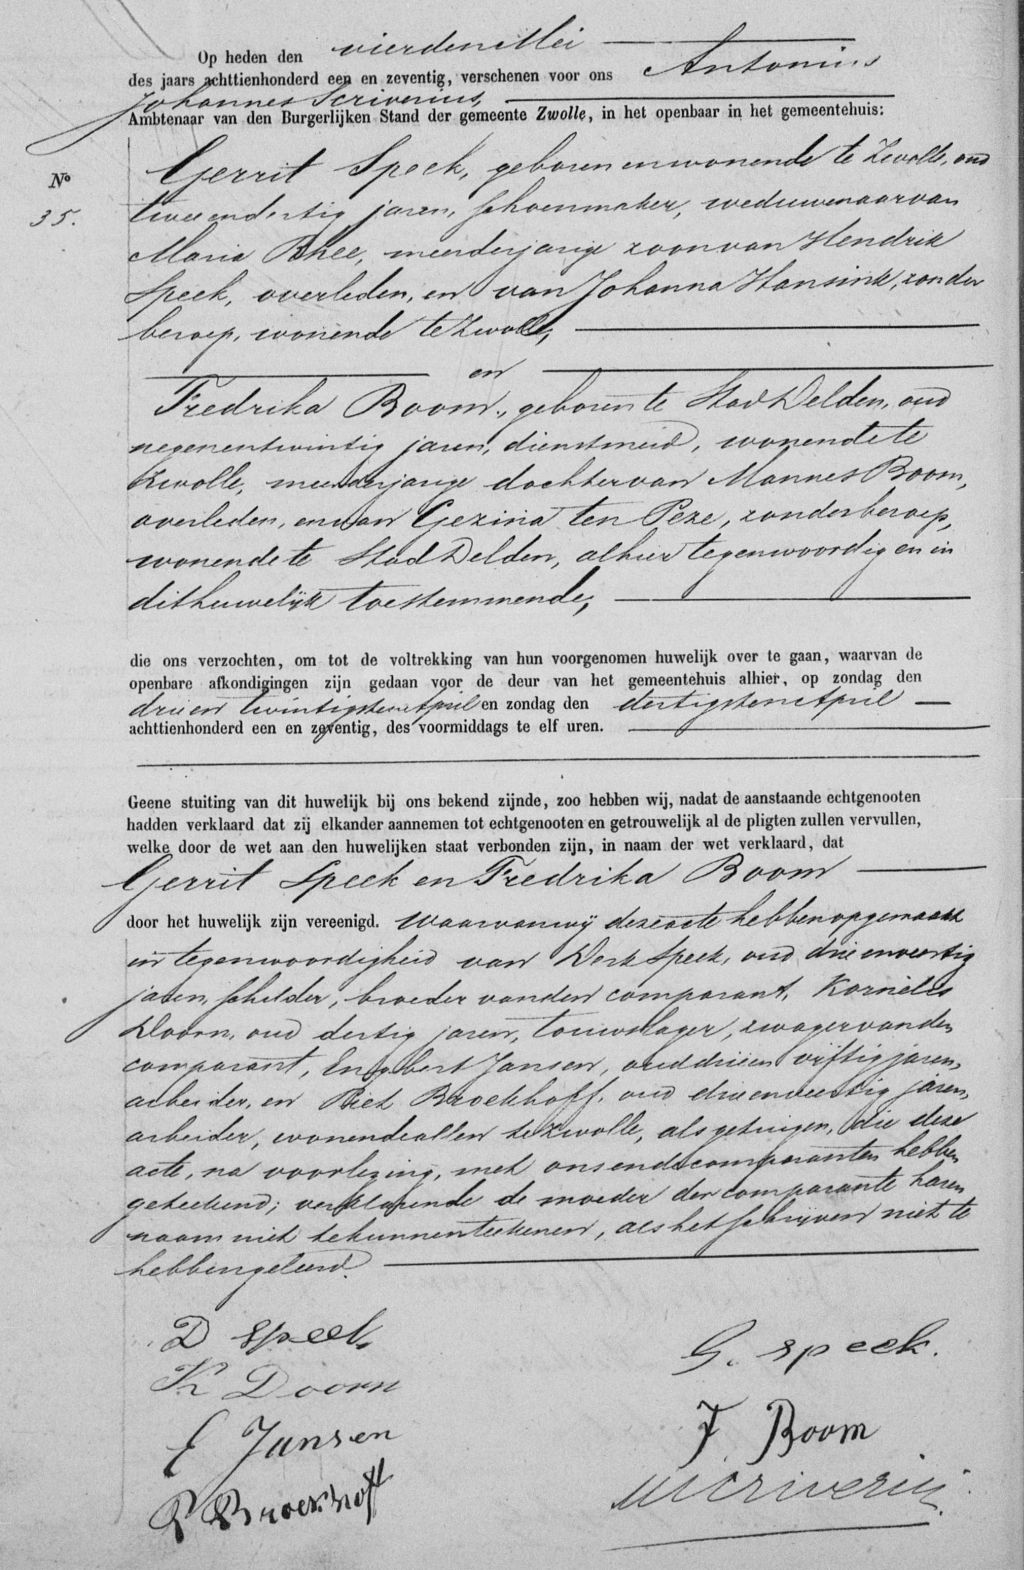 Op heden den vierden Mei
des jaars achttienhonderd een en zeventig, verschenen voor ons Antonius
Johannes Scriverius,
Ambtenaar van den Burgerlijken Stand der gemeente Zwolle, in het openbaar in het gemeentehuis:
Gerrit Speek, geboren en wonende te Zwolle, oud
No
35.
twee en dertig jaren, schoenmaker, weduwenaar van
Maria Rhee, meerderjarige zoon van Hendrik
Speek, overleden, en van Johanna Hansink, zonder
beroep, wonende te Zwolle,
en
Fredrika Boom, geboren te Stad Delden, oud
negenentwintig jaren, dienstmeid, wonende te
Zwolle, meerderjarige dochter van Mannes Boom,
overleden, en van Gezina ten Peze, zonder beroep,
wonende te Stad Delden, alhier tegenwoordig en in
dit huwelijk toestemmende,
die ons verzochten, om tot de voltrekking van hun voorgenomen huwelijk over te gaan, waarvan de
openbare afkondigingen zijn gedaan voor de deur van het gemeentehuis alhier, op zondag den
drie en twintigsten April en zondag den dertigsten April
achttienhonderd een en zeventig, des voormiddags te elf uren.
Geene stuiting van dit huwelijk bij ons bekend zijnde, zoo hebben wij, nadat de aanstaande echtgenooten
hadden verklaard dat zij elkander aannemen tot echtgenooten en getrouwelijk al de pligten zullen vervullen,
welke door de wet aan den huwelijken staat verbonden zijn, in naam der wet verklaard, dat
Gerrit Speek en Fredrika Boom
door het huwelijk zijn vereenigd. Waarvan wij deze acte hebben opgemaakt
in tegenwoordigheid van Derk Speek, oud drie en veertig
jaren, schilder, broeder van den comparant, Kornelis
Doorn, oud dertig jaren, touwslager, zwager van den
comparant, Engbert Jansen, oud drie en vijftig jaren,
arbeider, en Piet Broekhoff, oud drie en veertig jaren,
arbeider, wonende allen te Zwolle, als getuigen, die deze
acte, na voorlezing, met ons en de comparanten hebben
geteekend; verklarende de moeder der comparante haren
naam niet te kunnen teekenen, als het schrijven niet te
hebben geleerd.
D Speek
G. Speek.
K Doorn
E Jansen
F Boom
P Broekhoff
Scriverius